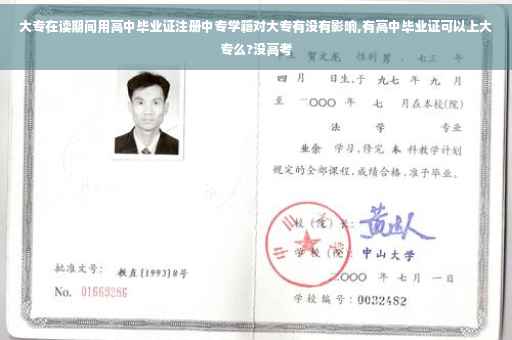 大专在读期间用高中毕业证注册中专学籍对大专有没有影响,有高中毕业证可以上大
专么?没高考
贺文龙 性别 男 、七三 年
四 月 日生,于 九七 年 九 月
至 二〇〇〇 年 七 月在本校(院)
法 学 专业
业余 学习,修完 本 科教学计划
规定的全部课程,成绩合格,准予毕业。
校(院)长:
学校(院): 中山大学
二〇〇〇 年 七 月 一 日
批准文号: 教直[1993]8号
No. 01669286
学校编号: 0032482